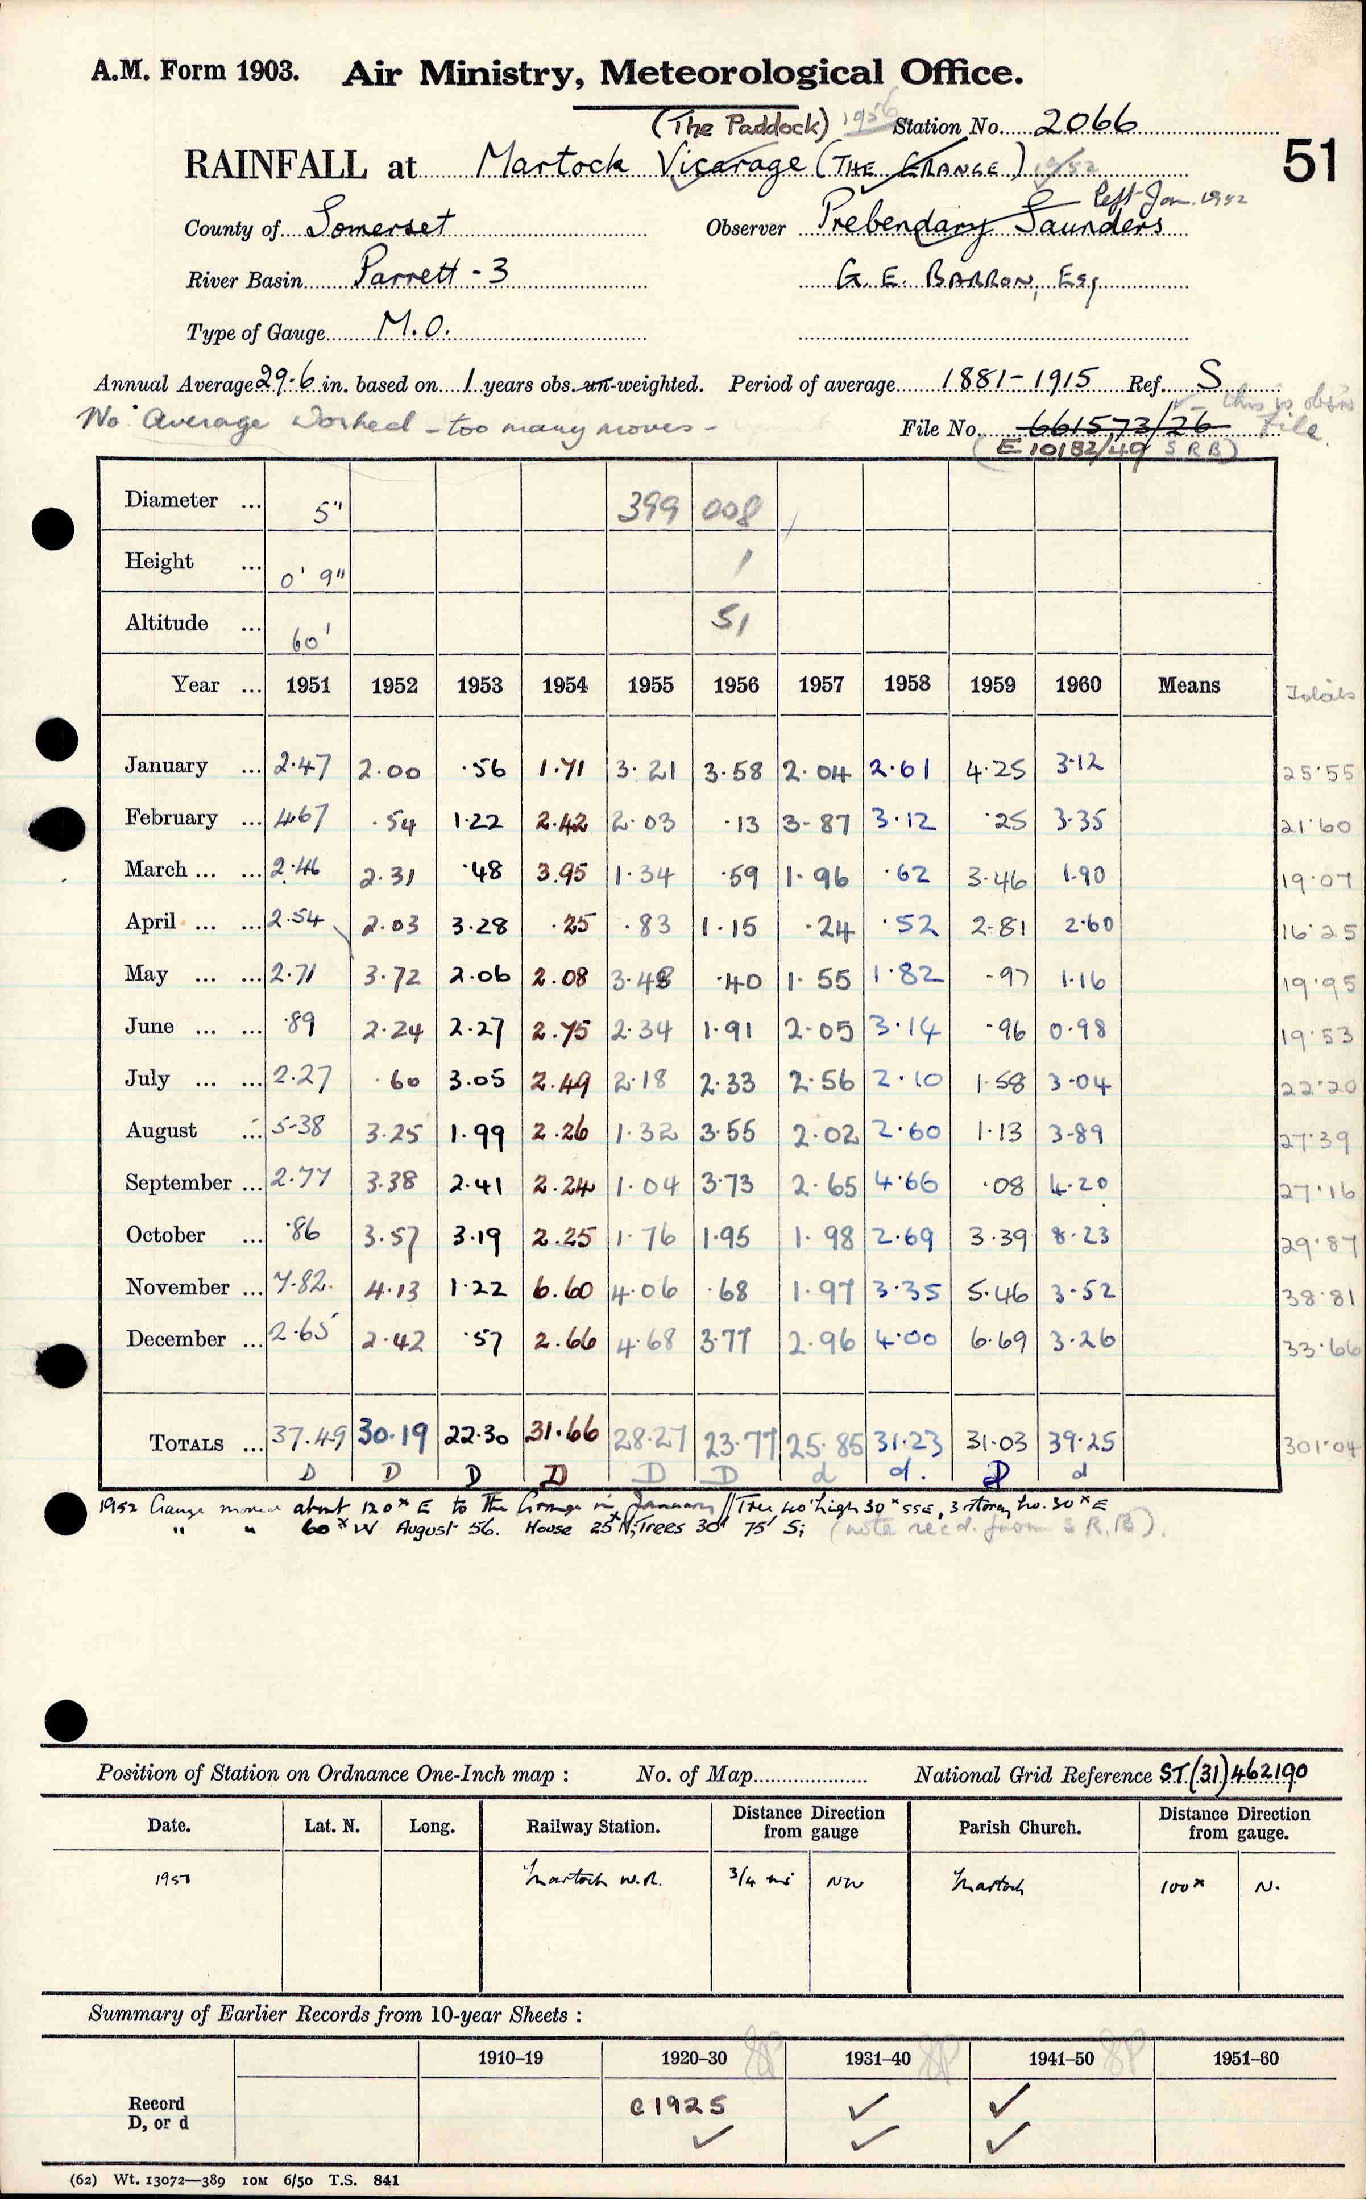 A.M. Form 1903. Air Ministry, Meteorological Office.
(The Paddock) 1956 Station No. 2066
51
RAINFALL at Martock Vicarage (THE GRANGE) 1952
Left Jan. 1952
County of Somerset Observer Prebendary Saunders
River Basin Parrett - 3 G. E. BARRON, Esq
Type of Gauge M.O.
Annual Average 29.6 in. based on 1 years obs. un-weighted. Period of average 1881-1915 Ref. S
No Average Worked - too many moves - File No. 661573/26 - this is obs file.
(E 10182/49 S R B)
Diameter ... 5" 399 008
Height ... 0' 9" 1
Altitude ... 60' 51
Year ... 1951 1952 1953 1954 1955 1956 1957 1958 1959 1960 Means Totals
January ... 2.47 2.00 .56 1.71 3.21 3.58 2.04 2.61 4.25 3.12 25.55
February ... 4.67 .54 1.22 2.42 2.03 .13 3.87 3.12 .25 3.35 21.60
March ... ... 2.46 2.31 .48 3.95 1.34 .59 1.96 .62 3.46 1.90 19.07
April ... ... 2.54 2.03 3.28 .25 .83 1.15 .24 .52 2.81 2.60 16.25
May ... ... 2.71 3.72 2.06 2.08 3.48 .40 1.55 1.82 .97 1.16 19.95
June ... ... .89 2.24 2.27 2.75 2.34 1.91 2.05 3.14 .96 0.98 19.53
July ... ... 2.27 .60 3.05 2.49 2.18 2.33 2.56 2.10 1.58 3.04 22.20
August ... 5.38 3.25 1.99 2.26 1.32 3.55 2.02 2.60 1.13 3.89 27.39
September ... 2.77 3.38 2.41 2.24 1.04 3.73 2.65 4.66 .08 4.20 27.16
October ... .86 3.57 3.19 2.25 1.76 1.95 1.98 2.69 3.39 8.23 29.87
November ... 7.82 4.13 1.22 6.60 4.06 .68 1.97 3.35 5.46 3.52 38.81
December ... 2.65 2.42 .57 2.66 4.68 3.77 2.96 4.00 6.69 3.26 33.66
TOTALS ... 37.49 30.19 22.30 31.66 28.27 23.77 25.85 31.23 31.03 39.25 301.04
D D D D D D d d. D d
1952 Gauge moved about 120x E to The Grange in January // Tree 40' high 30x SSE, 3 storey ho. 30x E
" " 60x W August 56. House 25ft N; Trees 30' 75' S; (note rec'd. from S R.B).
Position of Station on Ordnance One-Inch map : No. of Map National Grid Reference ST (31) 462190
Date. Lat. N. Long. Railway Station. Distance Direction from gauge Parish Church. Distance Direction from gauge.
1951 Martock W.R. 3/4 mi NW Martock 100x N.
Summary of Earlier Records from 10-year Sheets :
1910–19 1920–30 1931–40 1941–50 1951–60
Record D, or d C1925 ✓ ✓ ✓ ✓ ✓
(62) Wt. 13072—389 10M 6/50 T.S. 841